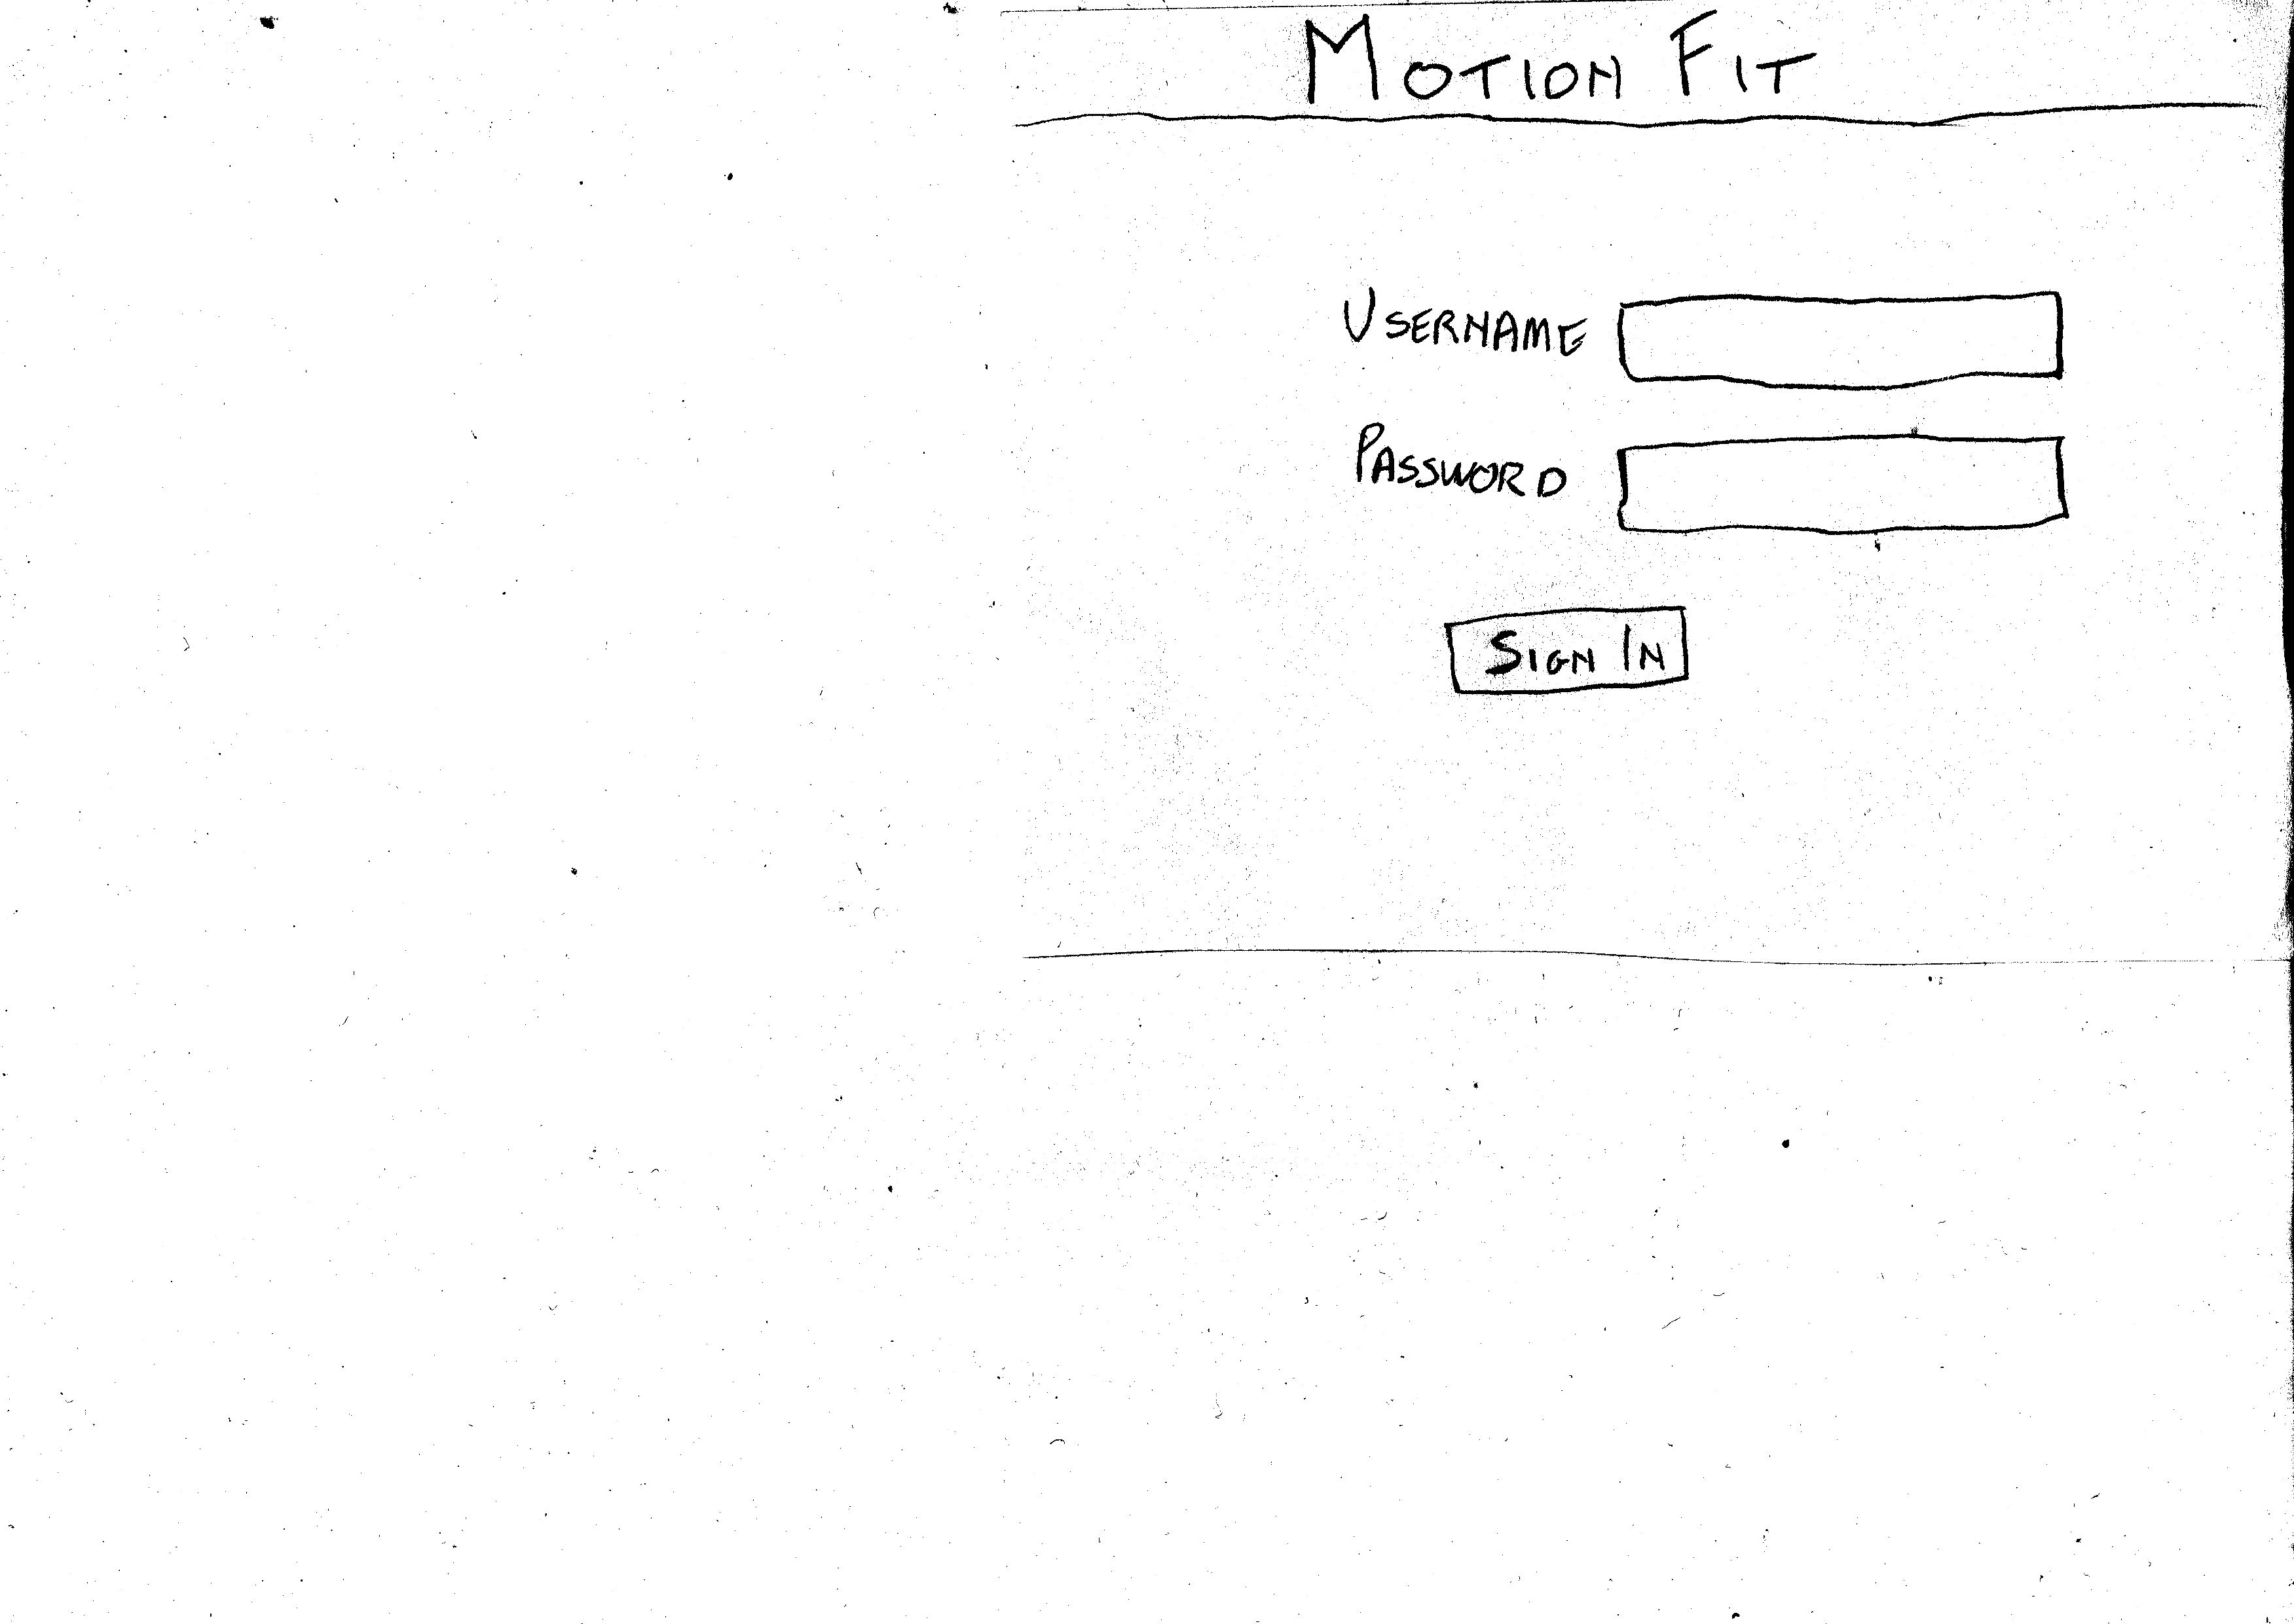 MOTION FIT
USERNAME
PASSWORD
SIGN IN